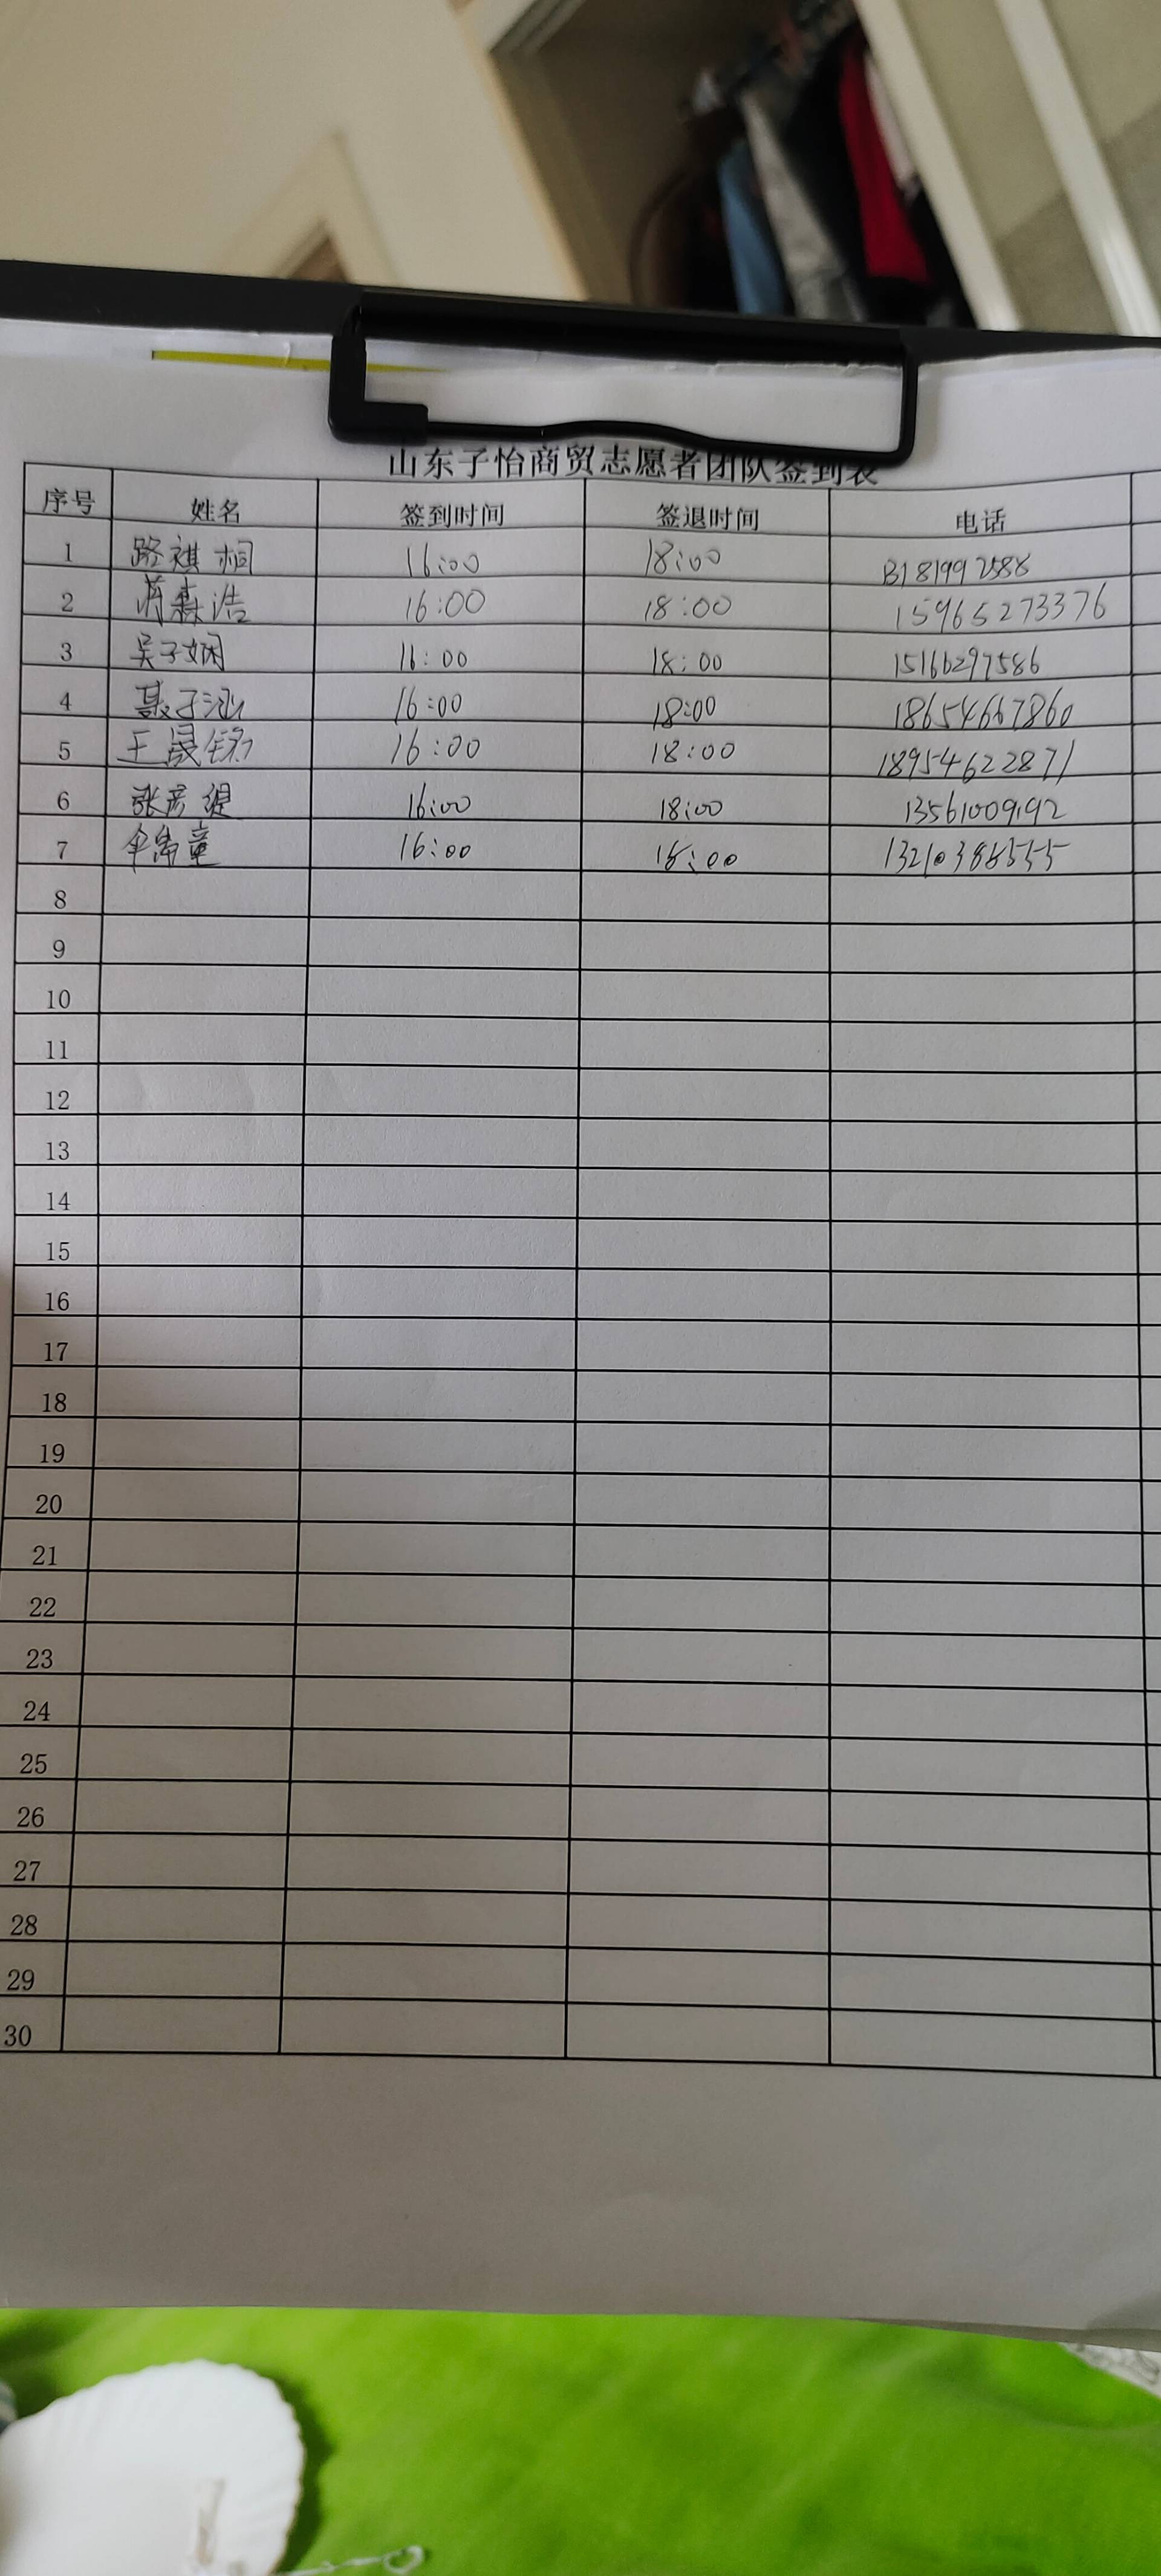 山东子怡商贸志愿者团队签到表
序号 姓名 签到时间 签退时间 电话
1 路祺桐 16:00 18:00 13181992588
2 芮森浩 16:00 18:00 15965273376
3 吴子娴 16:00 18:00 15166297586
4 聂子涵 16:00 18:00 18654667860
5 王晟铭 16:00 18:00 18954622871
6 张彦缇 16:00 18:00 13561009192
7 16:00 18:00 13210386555
8
9
10
11
12
13
14
15
16
17
18
19
20
21
22
23
24
25
26
27
28
29
30